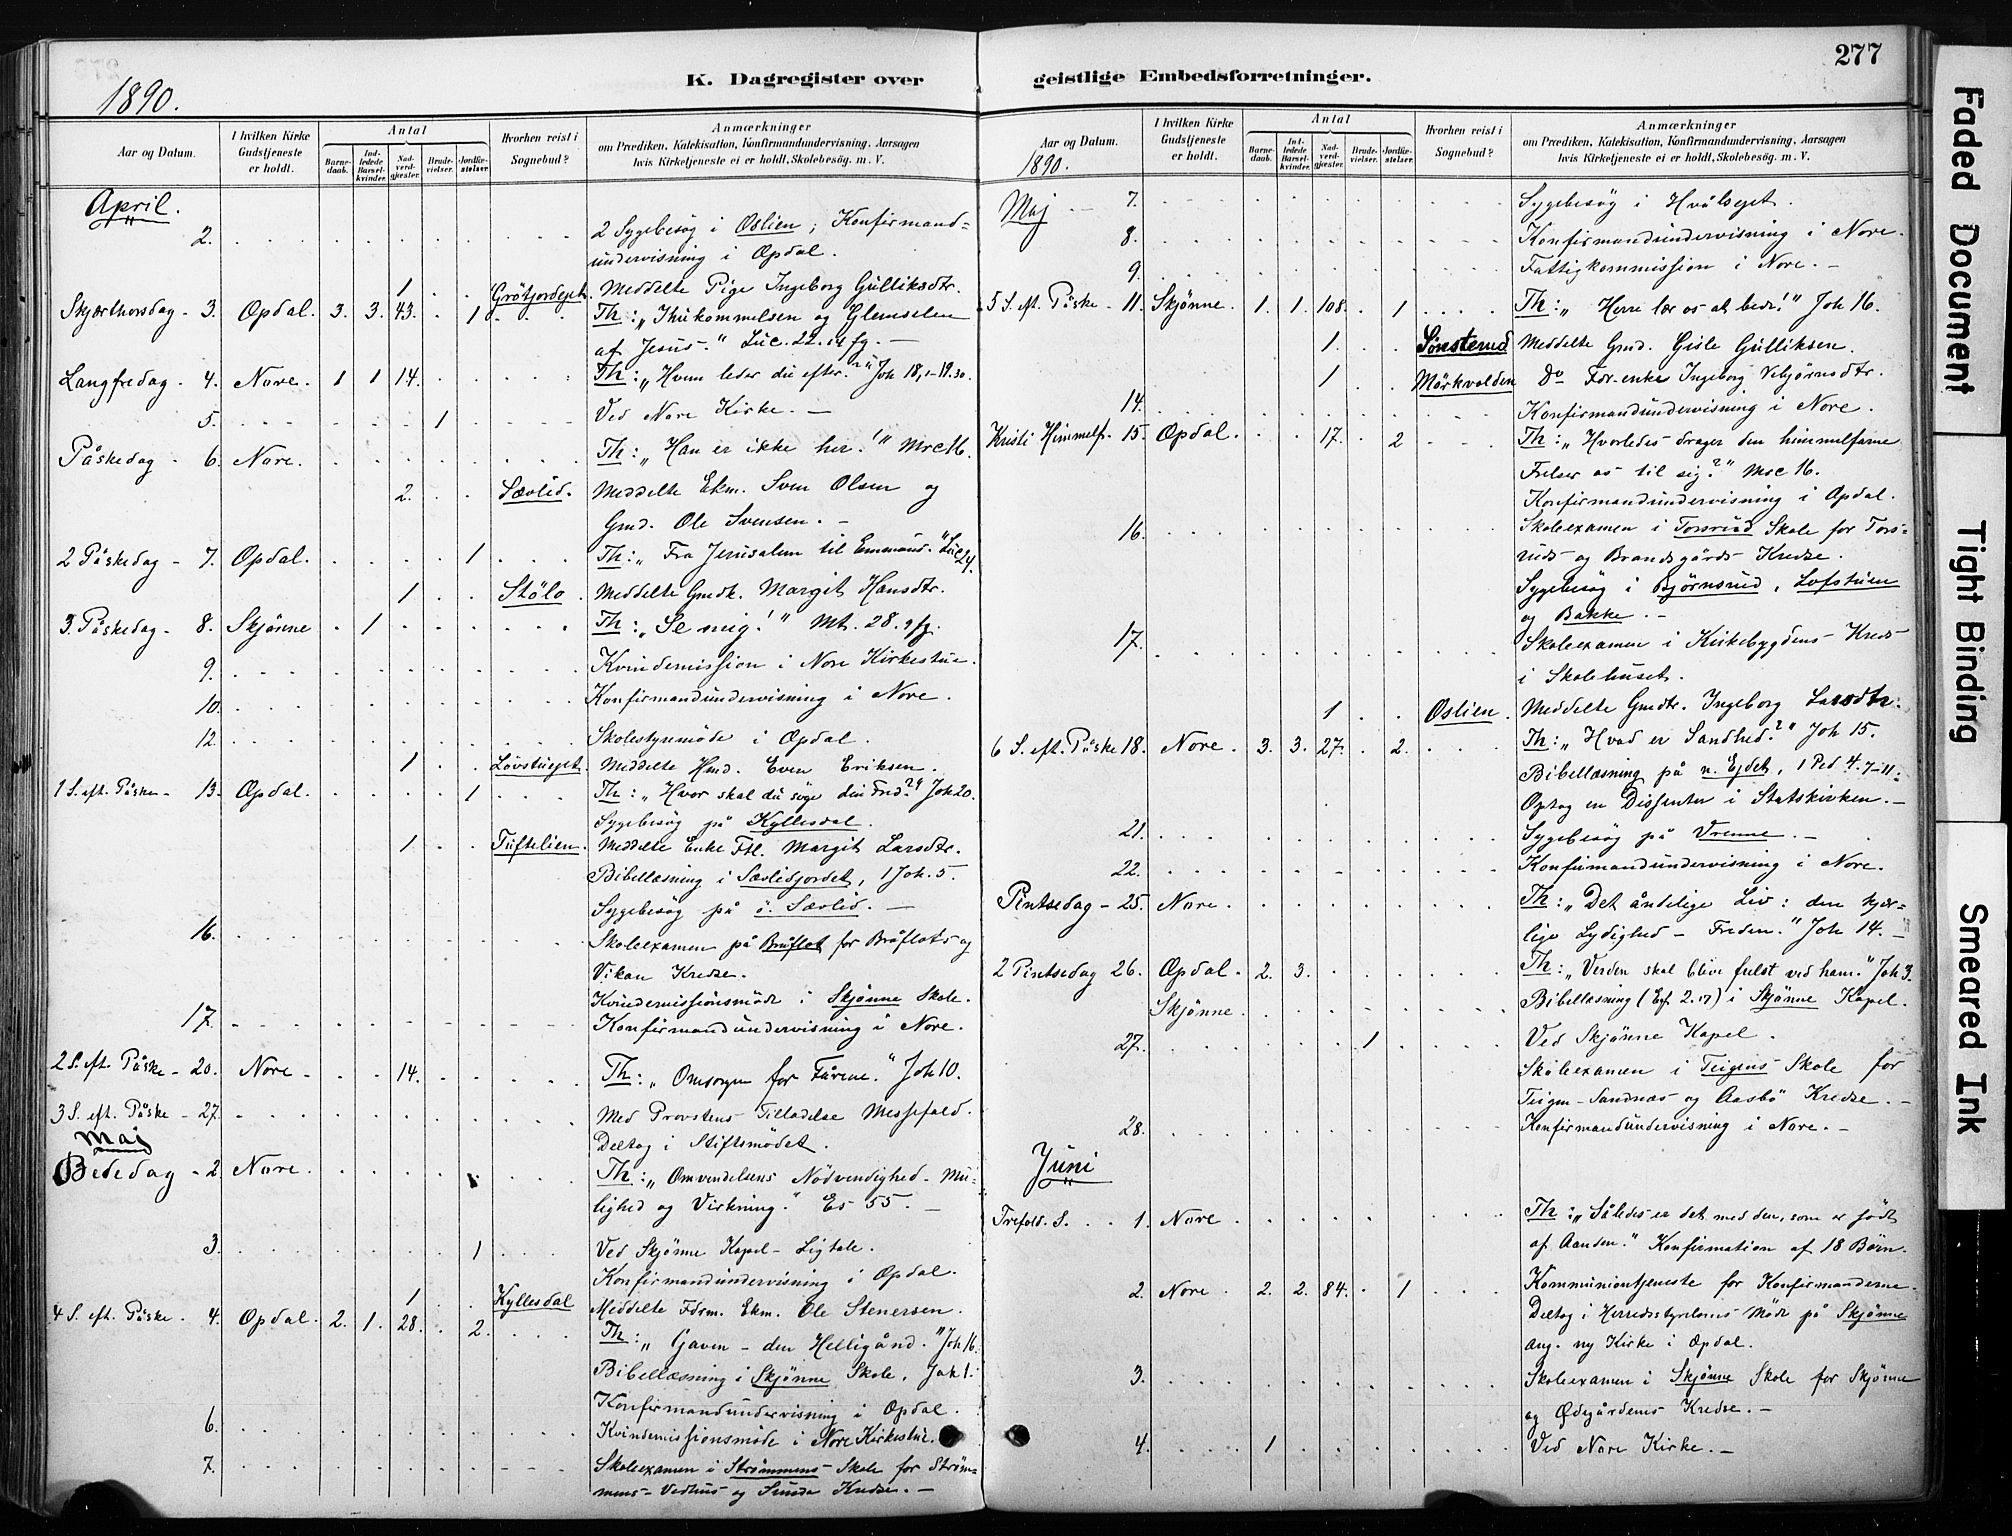 277
K. Dagregister over geistlige Embedsforretninger.
1890.
Aar og Datum.
I hvilken Kirke Gudstjeneste er holdt.
Antal
Barnedaab.
Indledede Barselkvinder.
Nadverdgjæster.
Brudevielser.
Jordfæstelser.
Hvorhen reist i Sognebud?
Anmærkninger
om Prædiken, Katekisation, Konfirmandundervisning, Aarsagen
hvis Kirketjeneste ei er holdt, Skolebesøg. m. V.
April.
2. 2 Sygebesøg i Oslien; Konfirmand-
undervisning i Opdal.
1 Grötjordeget. Meddelte Pige Ingeborg Gulliksdtr.
Skjærthorsdag - 3. Opdal. 3. 3. 43. 1 Th: "Ihukommelsen og Glemselen
af Jesus." Luc. 22.14 fg. —
Langfredag - 4. Nore. 1 1 14. Th: "Hvem leder du efter?" Joh 18,1-19.30.
5. 1 Ved Nore Kirke. —
Påskedag - 6. Nore. Th: "Han er ikke her!" Mrc 16.
2. Sævlid. Meddelte Ekm. Sven Olsen og
Gmd. Ole Svensen. —
2 Påskedag - 7. Opdal. 1 Th: "Fra Jerusalem til Emmaus." Luc 24.
1 Stölo. Meddelte Gmdk. Margit Hansdtr.
3. Påskedag - 8. Skjønne 1 Th: "Se mig!" Mt. 28. 9 fg.
9. Kvindemission i Nore Kirkestue.
10. Konfirmandundervisning i Nore.
12. Skolestyrmøde i Opdal.
1 Lövstueget. Meddelte Hmd. Even Eriksen.
1 S. eft. Påske - 13. Opdal. 1 Th: "Hvor skal du søge din Fred?" Joh 20.
Sygebesøg på Kyllesdal.
1 Tuftelien. Meddelte Enke Ftl. Margit Larsdtr.
Bibellæsning i Sævlidjordet, 1 Joh. 5.
Sygebesøg på ö. Sævlid. —
16. Skoleexamen på Bruflot for Bruflots og
Vikan Kredse.
Kvindemissionsmøde i Skjønne Skole.
17. Konfirmandundervisning i Nore.
2 S. eft. Påske - 20. Nore 14. Th: "Omsorgen for Fårene." Joh 10.
3 S. eft. Påske - 27. Med Provstens Tilladelse Messefald.
Deltog i Stiftsmödet.
Maj
Bededag - 2. Nore. Th: "Omvendelsens Nödvendighed - Mu-
lighed og Virkning." Es 55. —
3. 1 Ved Skjønne Kapel - Ligtale.
Konfirmandundervisning i Opdal.
1 Kyllesdal Meddelte Fdrm. Ekm. Ole Stenersen.
4 S. eft. Påske. 4. Opdal. 2. 1. 28. 2. Th: "Gaven - den Helligånd." Joh 16.
Bibellæsning i Skjønne Skole, Joh 1.
Konfirmandundervisning i Opdal.
6. Kvindemissionsmøde i Nore Kirkestue.
7. Skoleexamen i Strömmens Skole for Ström-
mens- Vedhus og Sunde Kredse. —
Aar og Datum.
1890.
I hvilken Kirke Gudstjeneste er holdt.
Antal
Barnedaab.
Indledede Barselkvinder.
Nadverdgjæster.
Brudevielser.
Jordfæstelser.
Hvorhen reist i Sognebud?
Anmærkninger
om Prædiken, Katekisation, Konfirmandundervisning, Aarsagen
hvis Kirketjeneste ei er holdt, Skolebesøg. m. V.
Maj 7. Sygebesøg i Hvålseget.
8. Konfirmandundervisning i Nore.
9. Fattigkommission i Nore. —
5 S. eft. Påske - 11. Skjønne. 1. 1. 108. 1 Th: "Herre lær os at bede!" Joh 16.
1 Sønsterud Meddelte Gmd. Gisle Gulliksen.
1 Mörkvolden Do Fdr.enke Ingeborg Vebjørnsdtr.
14. Konfirmandundervisning i Nore.
Kristi Himmelf. 15. Opdal. 17. 2 Th: "Hvorledes drager den himmelfarne
Frelser os til sig?" Mrc 16.
Konfirmandundervisning i Opdal.
16. Skoleexamen i Torsrud Skole for Tors-
ruds- og Brandsgårds Kredse.
Sygebesøg i Bjørnsrud, Lofstuen
og Bakke. —
17. Skoleexamen i Kirkebygdens Kreds
i Skolehuset.
1 Oslien. Meddelte Gmdtr. Ingeborg Larsdtr.
6 S. eft. Påske 18. Nore. 3. 3. 27. 2. Th: "Hvad er Sandhed?" Joh 15.
Bibellæsning på n. Ejdet, 1 Ped 4. 7-11.
Optog en Dissenter i Statskirken. —
21. Sygebesøg på Vrenne. —
22. Konfirmandundervisning i Nore.
Pintsedag - 25. Nore. Th: "Det åndelige Liv: den kjær-
lige Lydighed - Freden." Joh 14. —
2 Pintsedag 26. Opdal. 2. 3. Th: "Verden skal blive frelst ved ham." Joh 3.
Skjønne. Bibellæsning (Ef. 2.17) i Skjønne Kapel.
27. 1 Ved Skjønne Kapel.
Skoleexamen i Teigens Skole for
Teigen- Sandnæs og Aasbö Kredse. —
28. Konfirmandundervisning i Nore. —
Juni
Trefold. S. 1. Nore. Th: "Således er det med den, som er født
af Aanden." Konfirmation af 18 Børn.
2. Nore. 2. 2. 84. 1 Kommuniontjeneste for Konfirmanderne.
Deltog i Herredsstyrelsens Møde på Skjønne
ang. ny Kirke i Opdal.
3. Skoleexamen i Skjønne Skole for Skjønne
og Ødegårdens Kredse. —
4. 1 Ved Nore Kirke. —
Faded Document
Tight Binding
Smeared Ink